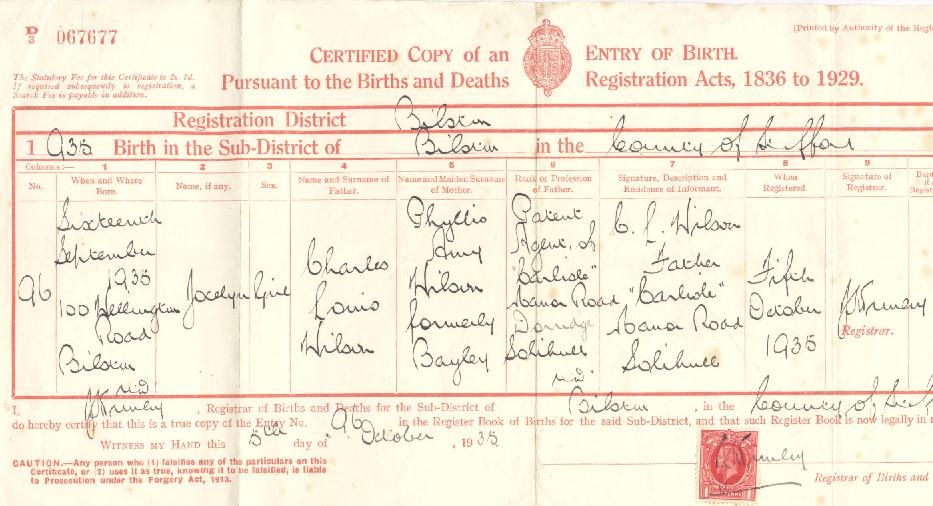 D/3 067677
(Printed by Authority of the
CERTIFIED COPY of an ENTRY OF BIRTH.
Pursuant to the Births and Deaths Registration Acts, 1836 to 1929.
The Statutory Fee for this Certificate is 2s. 7d.
If required subsequently to registration, a
Search Fee is payable in addition.
Registration District Bilston
1935 Birth in the Sub-District of Bilston in the County of
Columns:— 1 2 3 4 5 6 7 8 9
No. When and Where Born. Name, if any. Sex. Name and Surname of Father. Name and Maiden Surname of Mother. Rank or Profession of Father. Signature, Description and Residence of Informant. When Registered. Signature of Registrar.
96
Sixteenth
September
1935
100 Wellington
Road
Bilston
Jocelyn
Girl
Charles
Louis
Wilson
Phyllis
Amy
Wilson
formerly
Bayley
Patent
Agent, of
"Carlisle"
Manor Road
Dorridge
Solihull
C. L. Wilson
Father
"Carlisle"
Manor Road
Solihull
Fifth
October
1935
Registrar.
I, , Registrar of Births and Deaths for the Sub-District of Bilston , in the County of
do hereby certify that this is a true copy of the Entry No. 96 in the Register Book of Births for the said Sub-District, and that such Register Book is now legally in
WITNESS MY HAND this 5th day of October , 1935
CAUTION.—Any person who (1) falsifies any of the particulars on this
Certificate, or (2) uses it as true, knowing it to be falsified, is liable
to Prosecution under the Forgery Act, 1913.
Registrar of Births and